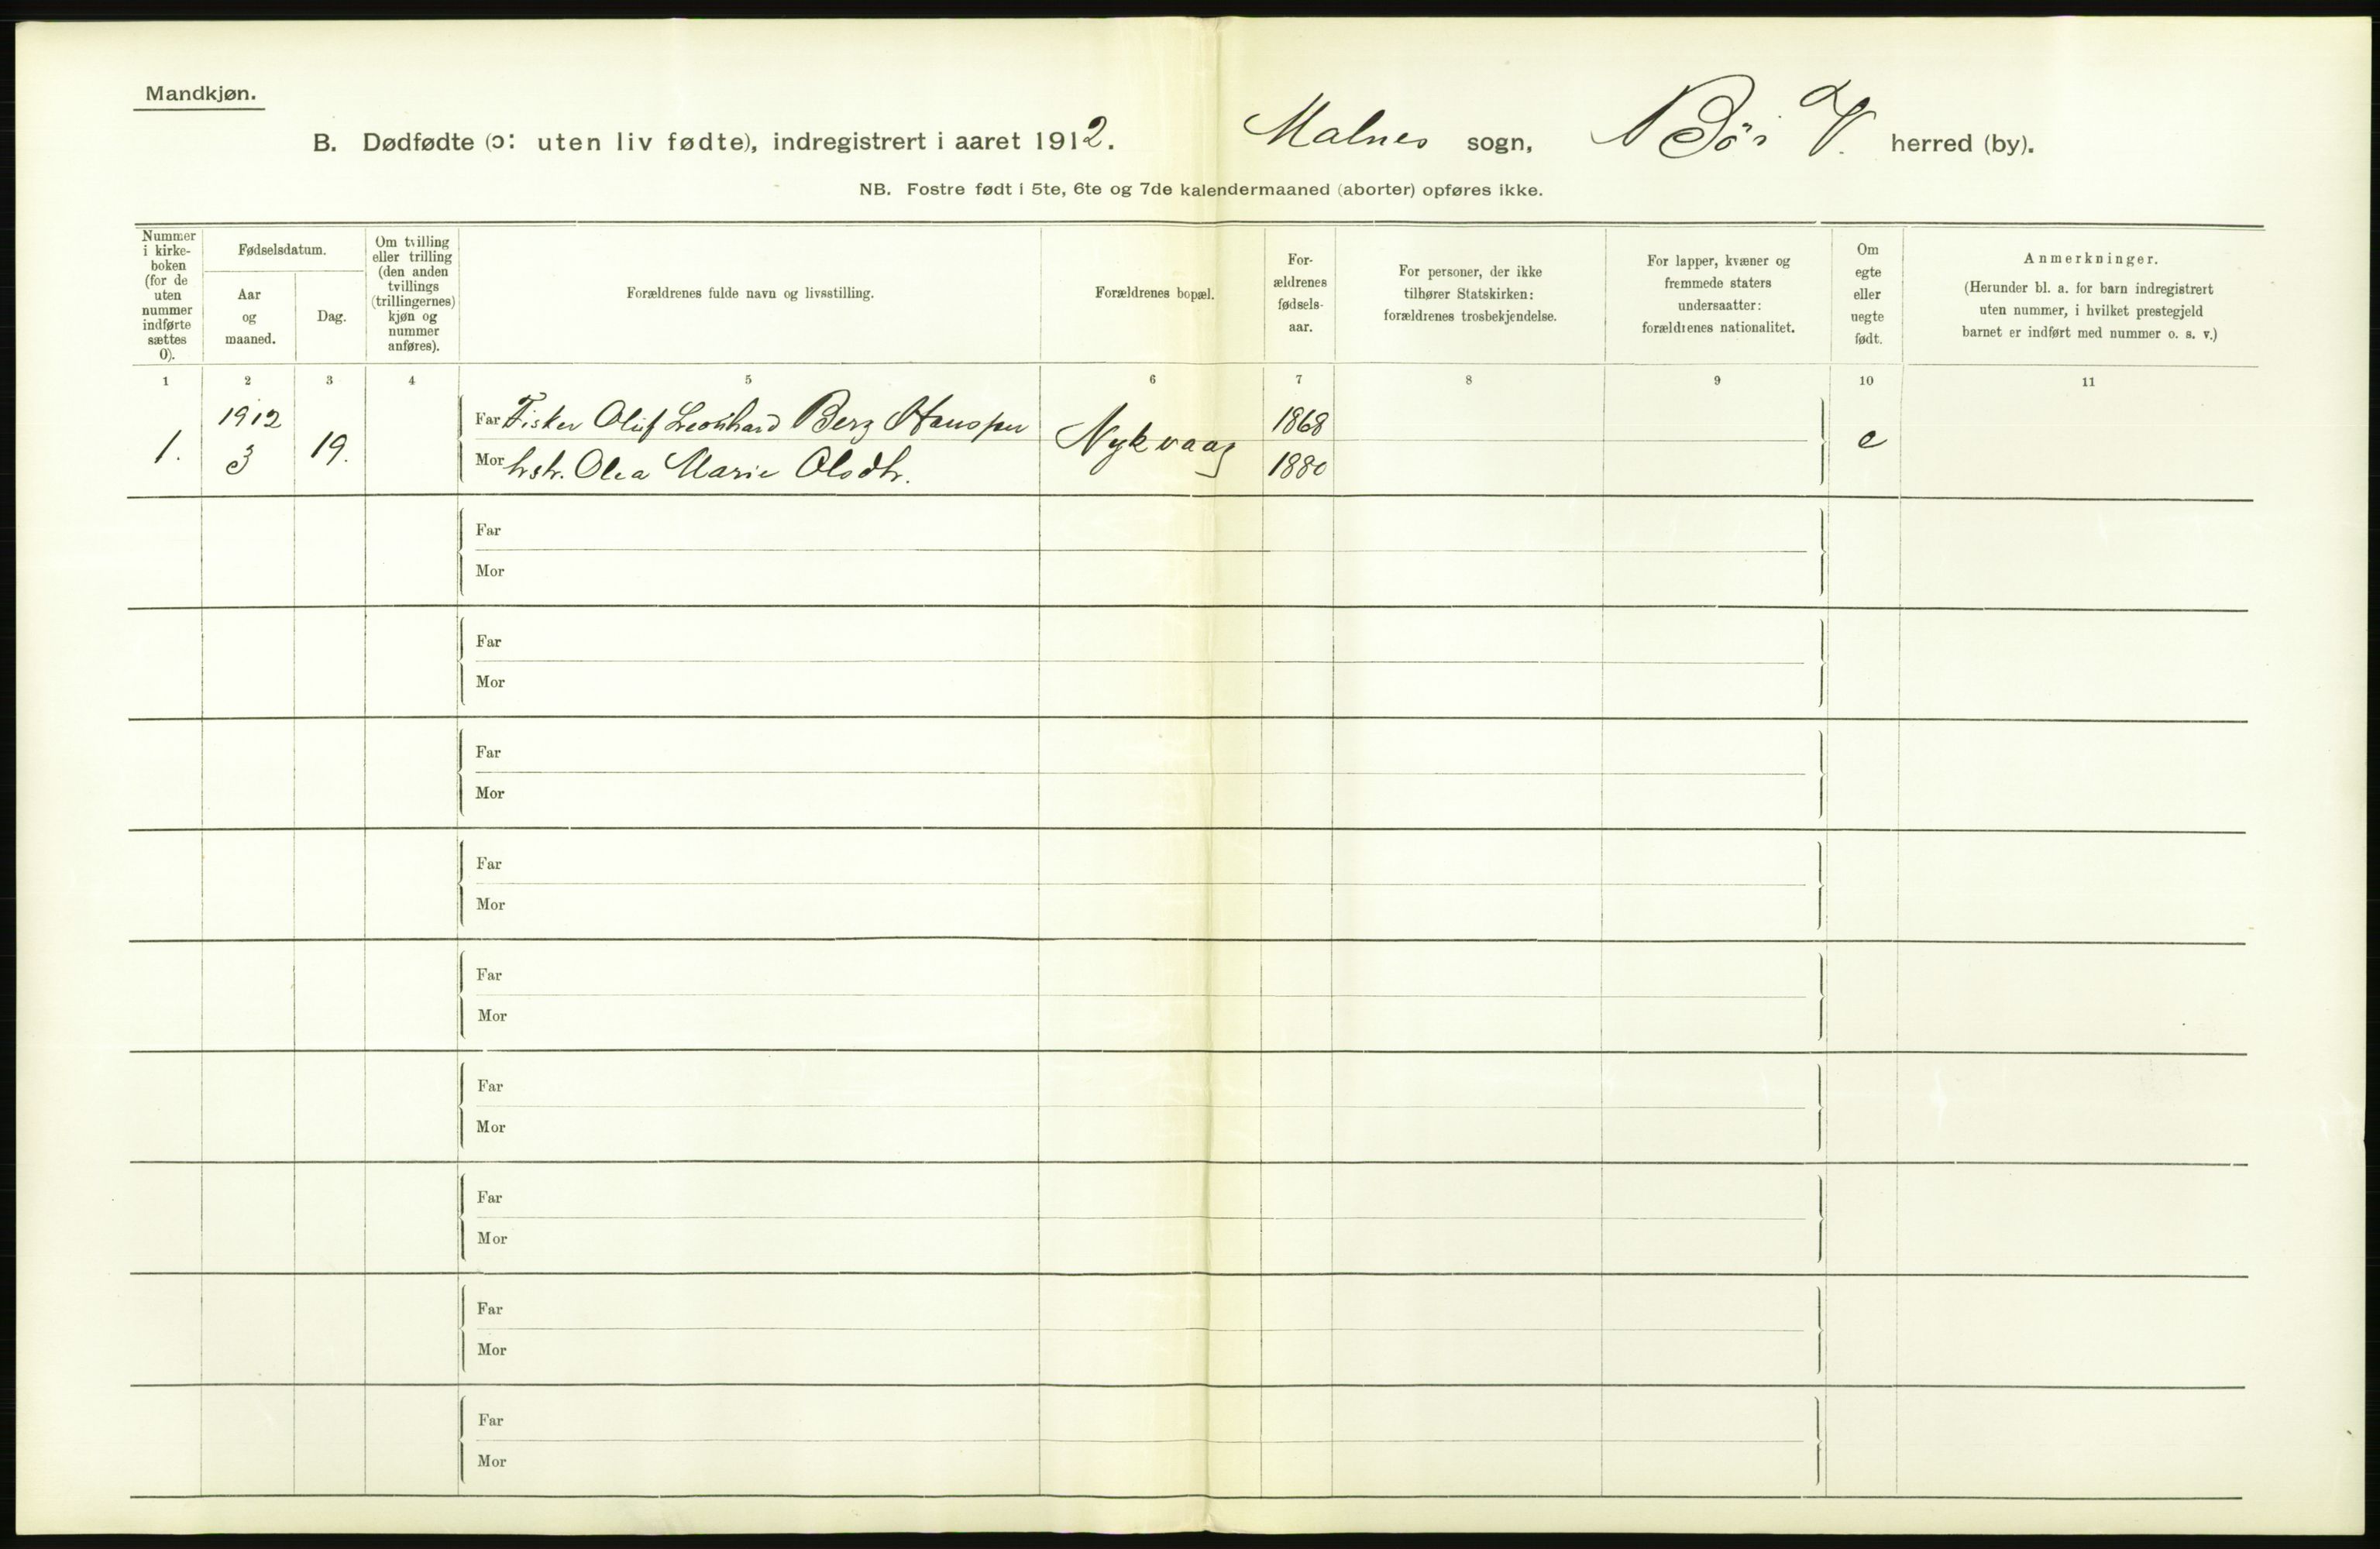 Mandkjøn.
B. Dødfødte (ɔ: uten liv fødte), indregistrert i aaret 1912. Malnes sogn, Bö i V. herred (by).
NB. Fostre født i 5te, 6te og 7de kalendermaaned (aborter) opføres ikke.
Nummer
i kirke-
boken
(for de
uten
nummer
indførte
sættes
0).
Fødselsdatum.
Aar
og
maaned.
Dag.
Om tvilling
eller trilling
(den anden
tvillings
(trillingernes)
kjøn og
nummer
anføres).
Forældrenes fulde navn og livsstilling.
Forældrenes bopæl.
For-
ældrenes
fødsels-
aar.
For personer, der ikke
tilhører Statskirken:
forældrenes trosbekjendelse.
For lapper, kvæner og
fremmede staters
undersaatter:
forældrenes nationalitet.
Om
egte
eller
uegte
født.
Anmerkninger.
(Herunder bl. a. for barn indregistrert
uten nummer, i hvilket prestegjeld
barnet er indført med nummer o. s. v.)
1 2 3 4 5 6 7 8 9 10 11
1. 1912 3 19. Far Fisker Oluf Leonhard Berg Hanssen Nykvaag 1868 e
Mor hstr. Olea Marie Olsdtr. 1880
Far
Mor
Far
Mor
Far
Mor
Far
Mor
Far
Mor
Far
Mor
Far
Mor
Far
Mor
Far
Mor